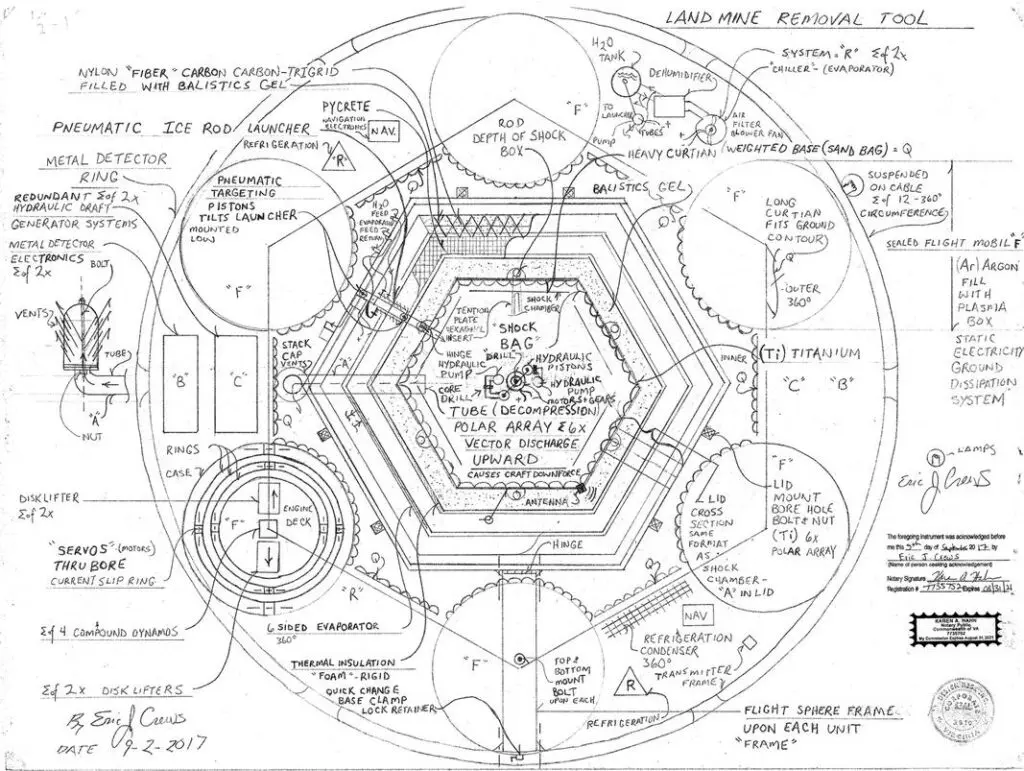 LAND MINE REMOVAL TOOL
NYLON "FIBER" CARBON CARBON-TRIGRID
FILLED WITH BALISTICS GEL
PNEUMATIC ICE ROD LAUNCHER
PYCRETE
NAVIGATION
ELECTRONICS
NAV.
REFRIGERATION
"R"
METAL DETECTOR
RING
REDUNDANT Σ of 2x
HYDRAULIC DRAFT
GENERATOR SYSTEMS
METAL DETECTOR
ELECTRONICS
Σ of 2x
BOLT
VENTS
TUBE
"A"
NUT
PNEUMATIC
TARGETING
PISTONS
TILTS LAUNCHER
MOUNTED
LOW
H2O
FEED
EVAPORATOR
FEED
RETURN
"F"
"B"
"C"
STACK
CAP
VENTS
"A"
Q
"F"
ROD
DEPTH OF SHOCK
BOX
H2O
TANK
DEHUMIDIFIER
TO
LAUNCHER
PUMP
TUBES
SYSTEM = "R" Σ of 2x
"CHILLER" - (EVAPORATOR)
AIR
FILTER
BLOWER FAN
HEAVY CURTIAN (WEIGHTED BASE (SAND BAG) = Q
BALISTICS GEL
"F"
LONG
CURTIAN
FITS GROUND
CONTOUR)
Q
OUTER
360°
SUSPENDED
ON CABLE
Σ of 12 - 360°
CIRCUMFERENCE)
SEALED FLIGHT MOBIL "F"
(Ar) ARGON
FILL
WITH
PLASMA
BOX
STATIC
ELECTRICITY
GROUND
DISSIPATION
SYSTEM
TENTION
PLATE
HEXAGONAL
INSERT
SHOCK
CHAMBER
"SHOCK
BAG"
"DRILL"
HINGE
HYDRAULIC
PUMP
CORE
DRILL
HYDRAULIC
PISTONS
HYDRAULIC
PUMP
MOTORS + GEARS
TUBE (DECOMPRESSION)
POLAR ARRAY Σ 6x
VECTOR DISCHARGE
UPWARD
CAUSES CRAFT DOWNFORCE
ANTENNA
INNER
Q
(Ti) TITANIUM
"C" "B"
LAMPS
Eric J Crews
RINGS
CASE
DISK LIFTER
Σ of 2x
"F"
ENGINE
DECK
"SERVOS" (MOTORS)
THRU BORE
CURRENT SLIP RING
"R"
Σ of 4 COMPOUND DYNAMOS
Σ of 2x DISK LIFTERS
By Eric J Crews
DATE 9-2-2017
6 SIDED EVAPORATOR
360°
THERMAL INSULATION
"FOAM" - RIGID
QUICK CHANGE
BASE CLAMP
LOCK RETAINER
HINGE
"F"
TOP &
BOTTOM
MOUNT
BOLT
UPON EACH
LID
CROSS
SECTION
SAME
FORMAT
AS
SHOCK
CHAMBER -
"A" IN LID
"F"
LID
MOUNT
BORE HOLE
BOLT & NUT
(Ti) 6x
POLAR ARRAY
NAV
REFRIGERATION
CONDENSER
360°
TRANSMITTER
FRAME
R
REFRIGERATION
FLIGHT SPHERE FRAME
UPON EACH UNIT
"FRAME"
The foregoing instrument was acknowledged before
me this 5th day of September 2017, by
Eric J. Crews
(Name of person seeking acknowledgement)
Notary Signature
Registration # 7735752 Expires 08/31/21
KAREN A. HAHN
Notary Public
Commonwealth of VA
7735752
My Commission Expires August 31, 2021
CORPORATE
SEAL
VIRGINIA